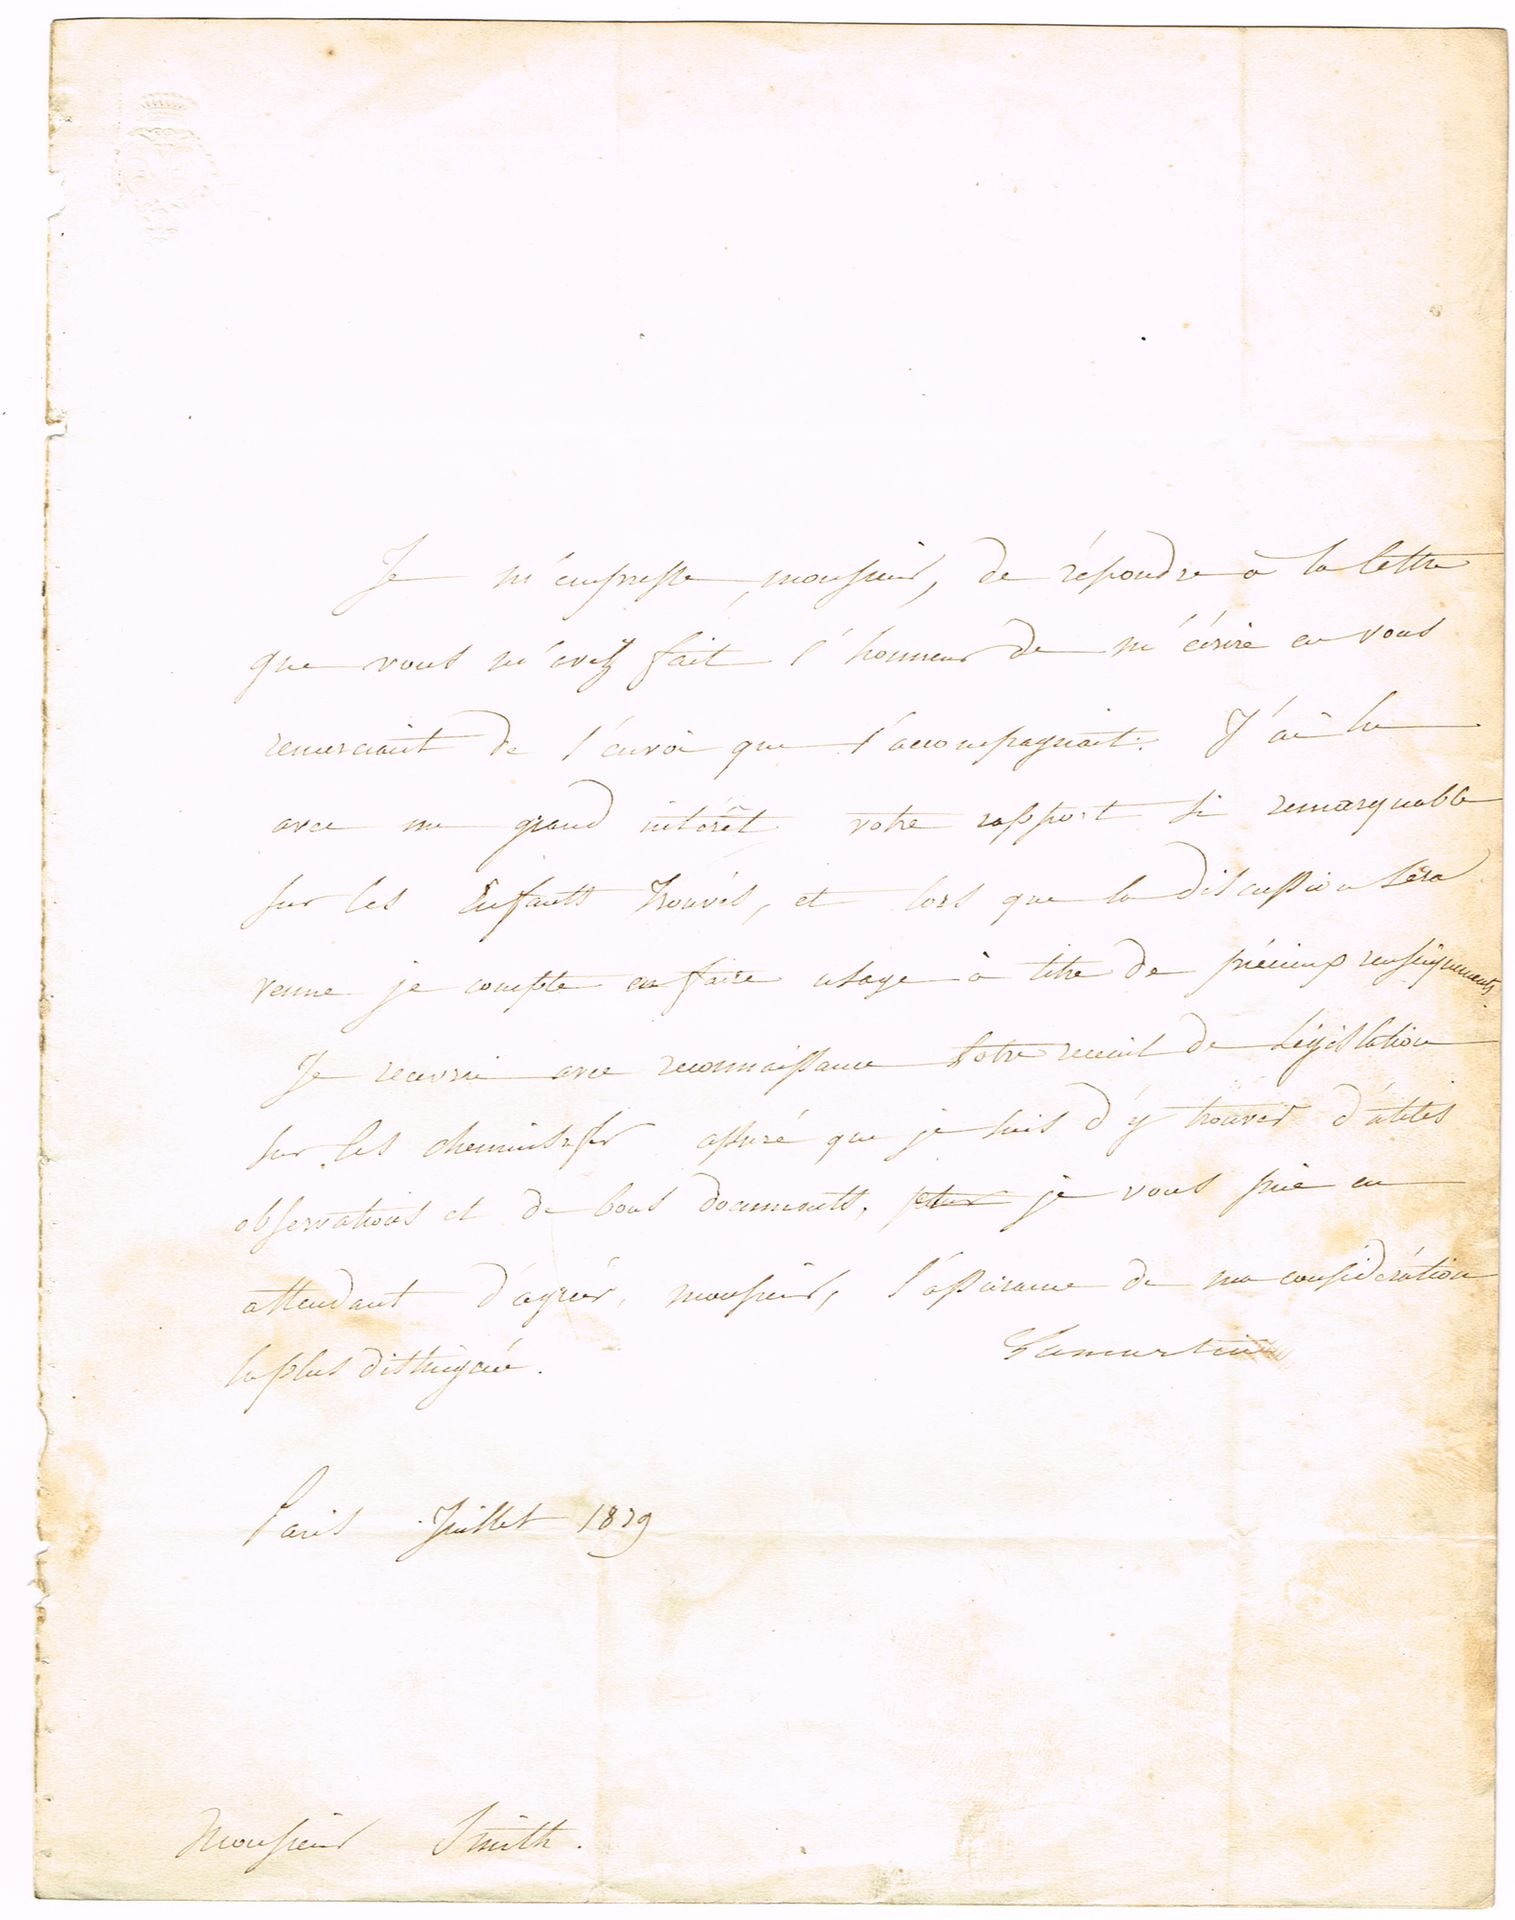 Je m'empresse, monsieur, de répondre à la lettre
que vous m'avez fait l'honneur de m'écrire en vous
remerciant de l'envoi que l'accompagnait. J'ai lu
avec un grand intérêt votre rapport si remarquable
sur les Enfants Trouvés, et lors que la discussion sera
venue je compte en faire usage à titre de précieux renseignements.
Je recevrai avec reconnaissance votre recueil de Législation
sur les chemins de fer assuré que je suis d'y trouver d'utiles
observations et de bons documents, je vous prie en
attendant d'agréer, monsieur, l'assurance de ma considération
la plus distinguée.
Lamartine
Paris Juillet 1839
Monsieur Smith.